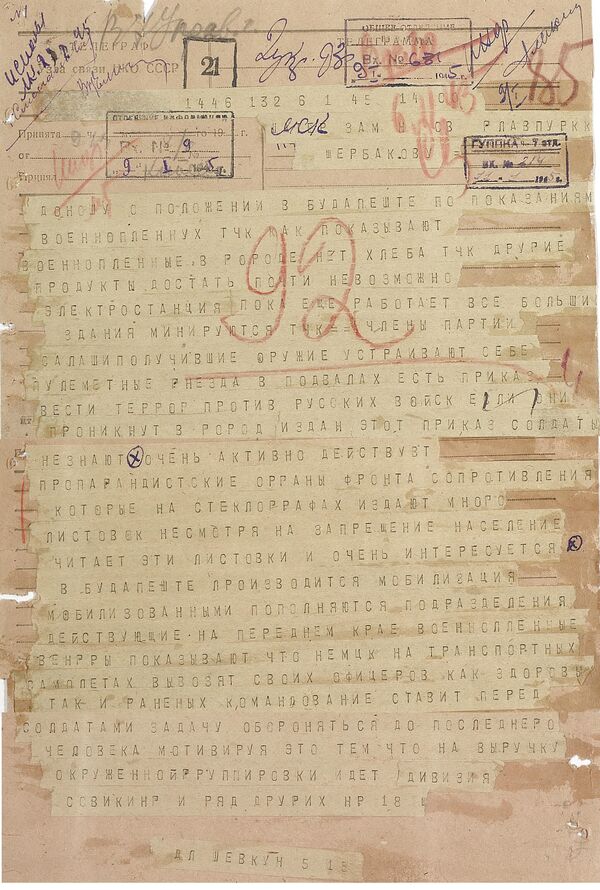 ТЕЛЕГРАФ
ТЕЛЕГРАММА
21
ОБЩЕЕ ОТДЕЛЕНИЕ
Вх. №
1945 г.
1446 132 6 1 45 14 0
Принята
МСК
ЗАМ
ГЛАВПУРКК
от
ЩЕРБАКОВУ =
Принял
9
9 I 1945 г.
ГУППКА - 7 отд.
ВХ. №
85
92
ДОНОШУ О ПОЛОЖЕНИИ В БУДАПЕШТЕ ПО ПОКАЗАНИЯМ
ВОЕННОПЛЕННУХ ТЧК КАК ПОКАЗЫВАЮТ
ВОЕННОПЛЕННЫЕ В РОРОДЕ НЕТ ХЛЕБА ТЧК ДРУГИЕ
ПРОДУКТЫ ДОСТАТЬ ПОТИ НЕВОЗМОЖНО
ЭЛЕКТРОСТАНЦИЯ ПОКА ЕЩЕ РАБОТАЕТ ВСЕ БОЛЬШИ
ЗДАНИЯ МИНИРУЮТСЯ ТЧК == ЧЛЕНЫ ПАРТИИ
САЛАШИПОЛУЧИВШИЕ ОРУЖИЕ УСТРАИВАЮТ СЕБЕ
ПУЛЕМЕТНЫЕ РНЕЗДА В ПОДВАЛАХ ЕСТЬ ПРИКАЗ
ВЕСТИ ТЕРРОР ПРОТИВ РУССКИХ ВОЙСК ЕСЛИ ОНИ
ПРОНИКНУТ В РОРОД ИЗДАН ЭТОТ ПРИКАЗ СОЛДАТЫ
НЕЗНАЮТ ОЧЕНЬ АКТИВНО ДЕЙСТВУВТ
ПРОПАРАНДИСТСКИЕ ОРРАНЫ ФРОНТА СОПРОТИВЛЕНИЯ
КОТОРЫЕ НА СТЕКЛОРРАФАХ ИЗДАЮТ МНОРО
ЛИСТОВОК НЕСМОТРЯ НА ЗАПРЕЩЕНИЕ НАСЕЛЕНИЕ
ЧИТАЕТ ЭТИ ЛИСТОВКИ 6 И ОЧЕНЬ ИНТЕРЕСУЕТСЯ
В БУДАПЕШТЕ ПРОИЗВОДИТСЯ МОБИЛИЗАЦИЯ
МОБИЛИЗОВАННЫМИ ПОПОЛНЯЮТСЯ ПОДРАЗДЕЛЕНИЯ
ДЕЙСТВУЮЩИЕ НА ПЕРЕДНЕМ КРАЕ ВОЕННОЛЛЕННЫЕ
ВЕНГРЫ ПОКАЗЫВАЮТ ЧТО НЕМЦК НА ТРАНСПОРТНЫХ
САМОЛЕТАХ ВЫВОЗЯТ СВОИХ ОФИЦЕРОВ КАК ЗДОРОВЫ
ТАК И РАНЕНЫХ КОМАНДОВАНИЕ СТАВИТ ПЕРЕД
СОЛДАТАМИ ЗАДАЧУ ОБОРОНЯТЬСЯ ДО ПОСЛЕДНЕРО
ЧЕЛОВЕКА МОТИВИРУЯ ЭТО ТЕМ ЧТО НА ВЫРУЧКУ
ОКРУЖЕННОЙРРУППИРОВКИ ИДЕТ ДИВИЗИЯ
СОВИКИНР И РЯД ДРУГИХ НР 18
ДЛ ШЕВКУН 5 18